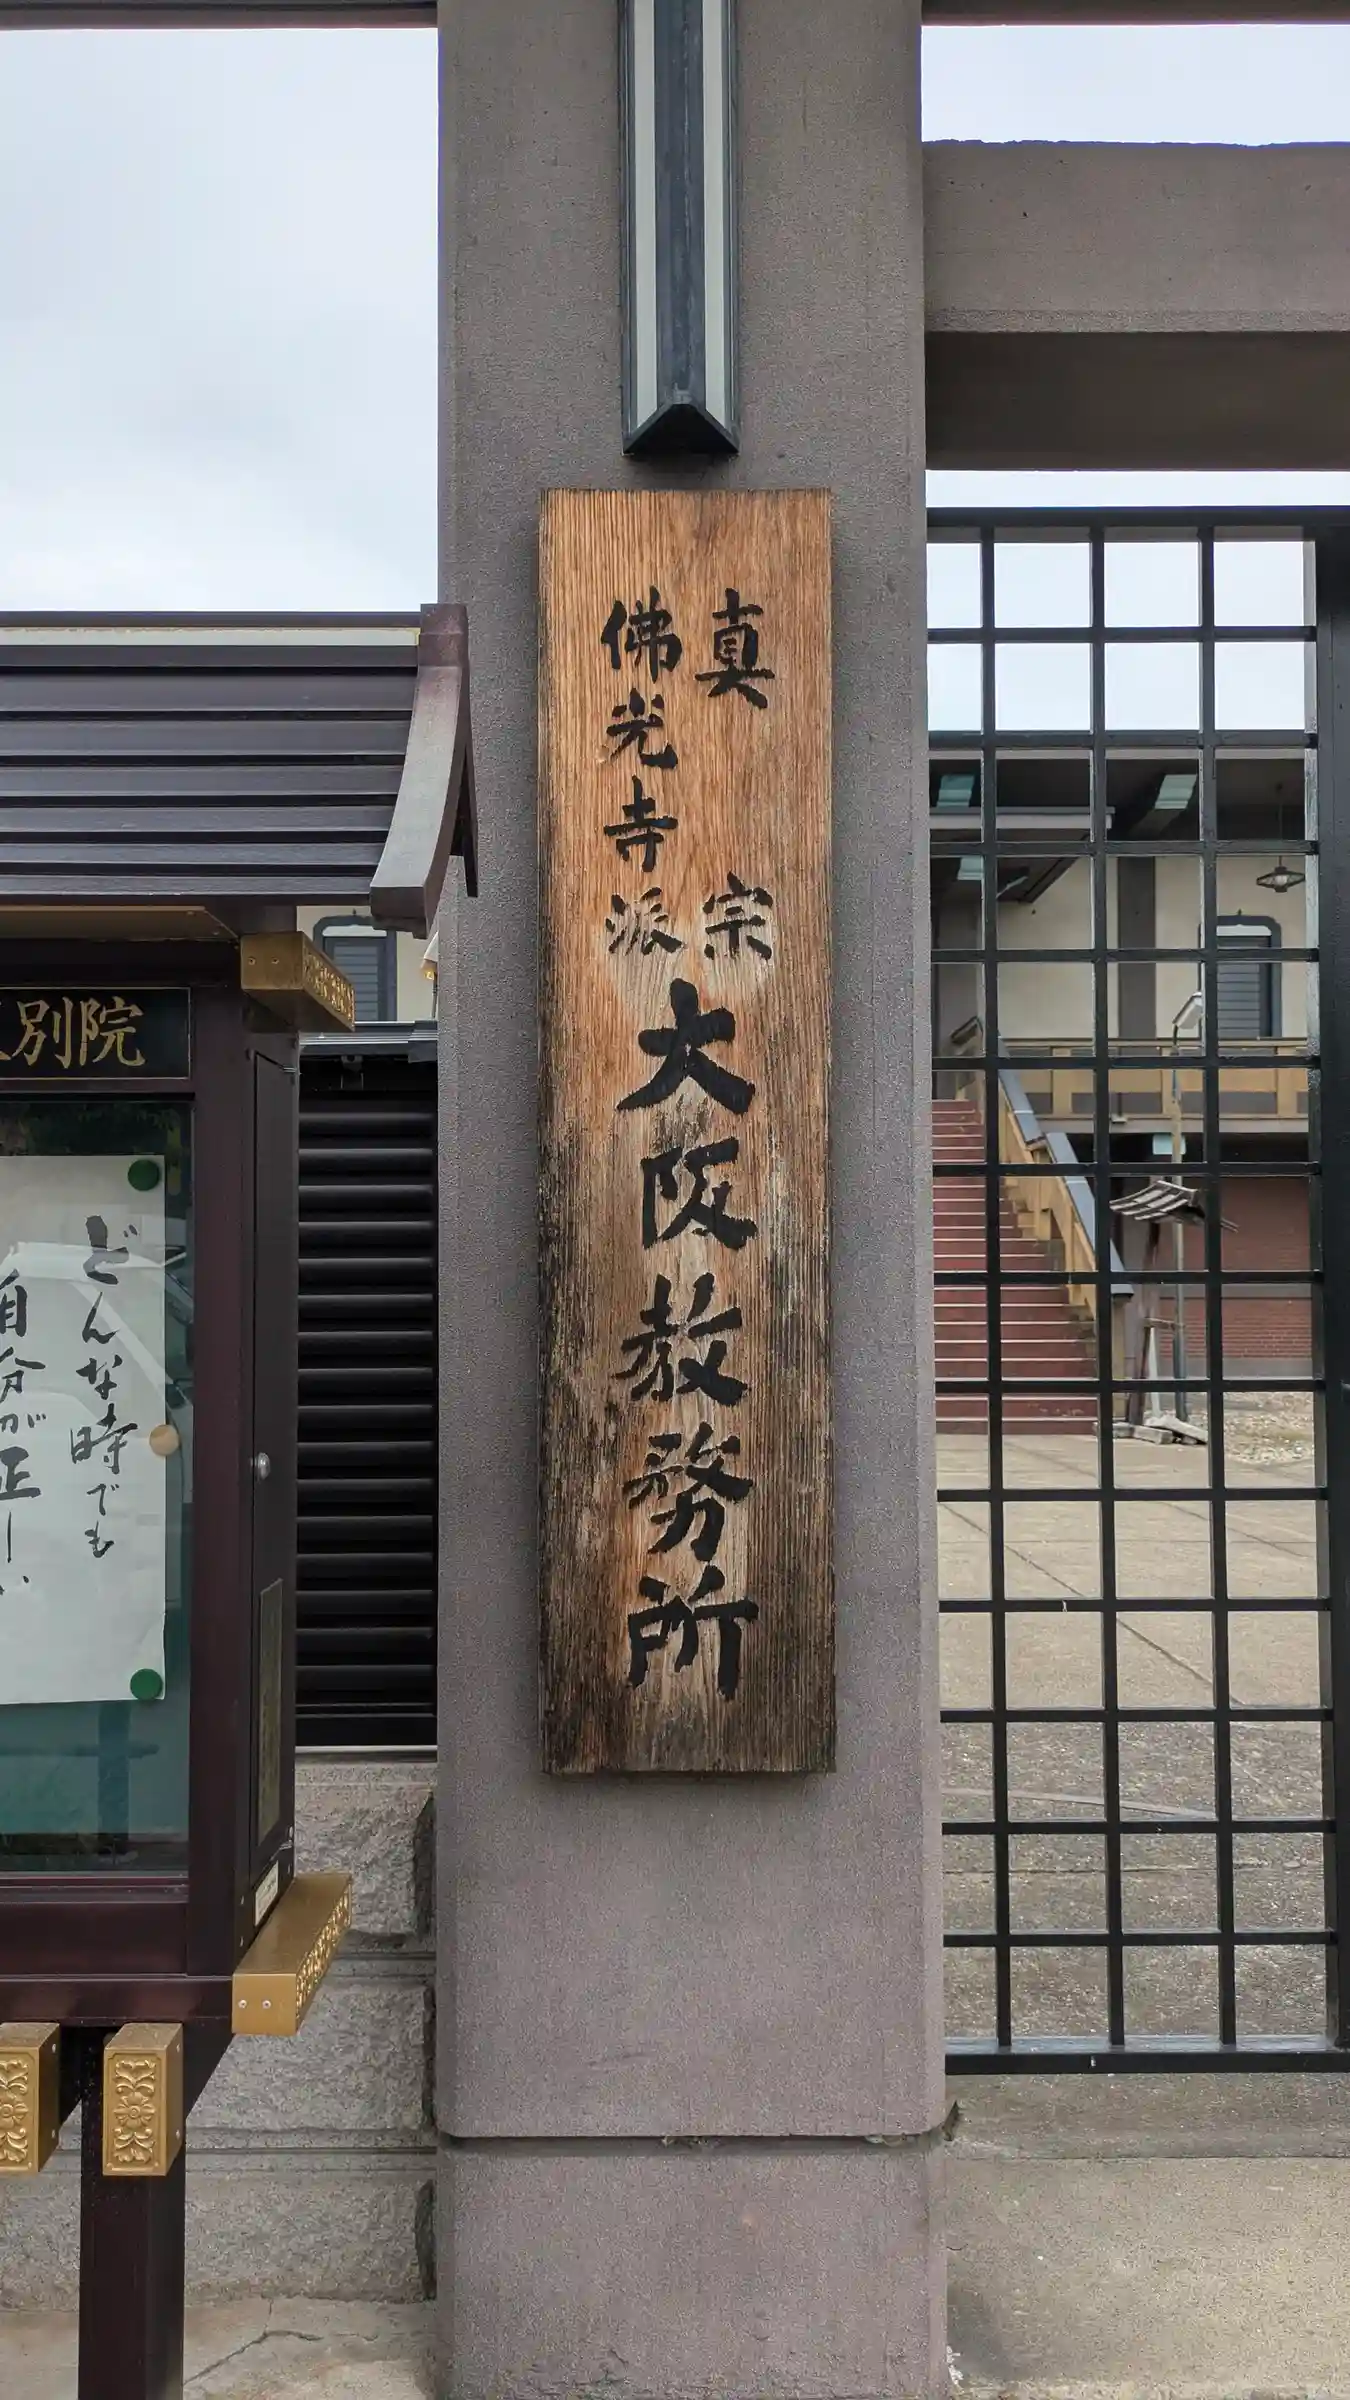 真宗
佛光寺派
大阪教務所
別院
どんな時でも
自分が正しい